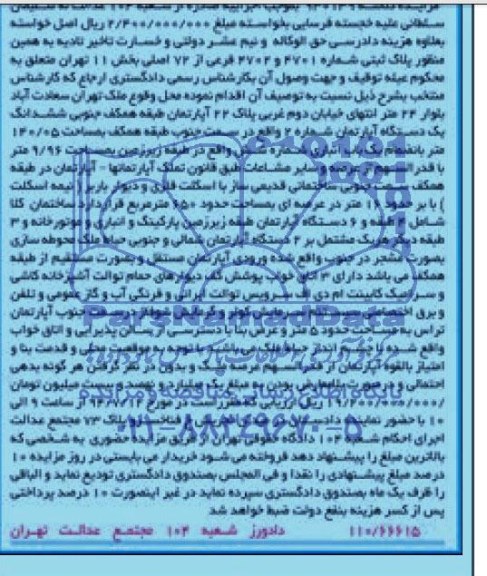 سلطانی علیه خجسته فرسایی بخواسته مبلغ ۲/۴۰۰/۰۰۰/۰۰۰ ریال اصل خواسته
بعلاوه هزینه دادرسی حق الوکاله و نیم عشر دولتی و خسارت تاخیر تادیه به همین
منظور پلاک ثبتی شماره ۴۷۰۱ و ۴۷۰۲ فرعی از ۷۲ اصلی بخش ۱۱ تهران متعلق به
محکوم علیه توقیف و جهت وصول آن بکارشناس رسمی دادگستری ارجاع که کارشناس
منتخب بشرح ذیل نسبت به توصیف آن اقدام نموده محل وقوع ملک تهران سعادت آباد
بلوار ۲۴ متر انتهای خیابان دوم غربی پلاک ۲۲ آپارتمان طبقه همکف جنوبی ششدانگ
یک دستگاه آپارتمان شماره ۲ واقع در سمت جنوب طبقه همکف بمساحت ۱۴۰/۰۵
متر بانضمام یک باب انباری شماره شش واقع در طبقه زیرزمین بمساحت ۹/۹۶ متر
با قدر السهم از عرصه و سایر مشاعات طبق قانون تملک آپارتمانها - آپارتمان در طبقه
همکف سمت جنوبی ساختمانی قدیمی ساز با اسکلت فلزی و دیوار باربر ( نیمه اسکلت
) با بر حدود ۱۶ متر در عرصه ای بمساحت حدود ۶۵۰ مترمربع قرار دارد ساختمان کلا
شامل ۴ طبقه و ۶ دستگاه آپارتمان طبقه زیرزمین پارکینگ و انباری و موتورخانه و ۳
طبقه دیگر هریک مشتمل بر ۲ دستگاه آپارتمان شمالی و جنوبی حیاط ملک محوطه سازی
بصورت مشجر در جنوب واقع شده ورودی آپارتمان مستقل و بصورت مستقیم از طبقه
همکف می باشد دارای ۳ اتاق خواب پوشش کف دیوارهای حمام توالت آشپزخانه کاشی
و سرامیک کابینت ام دی اف سرویس توالت ایرانی و فرنگی آب و گاز عمومی و تلفن
و برق اختصاصی سیستم سرمایش کولر و گرمایش شوفاژ در جنوب آپارتمان
تراس به مساحت حدود ۵ متر و عرض بنا با دسترسی از سالن پذیرایی و اتاق خواب
واقع شده با چشم انداز حیاط ملک می باشد با توجه به موقعیت محلی و قدمت بنا و
امتیاز بالقوه آپارتمان از قدرالسهم عرصه مشک و بدون در نظر گرفتن هر گونه بدهی
احتمالی و در صورت بلامعارض بودن به مبلغ یک میلیارد و نهصد و بیست میلیون تومان
۱۹/۲۰۰/۰۰۰/۰۰۰ ریال ارزیابی که مقرر است در مورخ ۹۴/۷/۱۲ از ساعت ۹ الی
۱۰ با حضور نماینده دادسرا پلاک ۷۳ مجتمع عدالت
اجرای احکام شعبه ۱۰۳ دادگاه حقوقی تهران از طریق مزایده حضوری به شخصی که
بالاترین مبلغ را پیشنهاد دهد فروخته می شود خریدار می بایستی در روز مزایده ۱۰
درصد مبلغ پیشنهادی را نقدا و فی المجلس بصندوق دادگستری تودیع نماید و الباقی
را ظرف یک ماه بصندوق دادگستری سپرده نماید در غیر اینصورت ۱۰ درصد پرداختی
پس از کسر هزینه بنفع دولت ضبط خواهد شد
۱۱۰/۶۶۶۱۵ دادورز شعبه ۱۰۳ مجتمع عدالت تهران
ParsNamadData
پایگاه اطلاع رسانی مناقصه و مزایده
۰۲۱-۸۸۳۴۹۶۷۰-۵